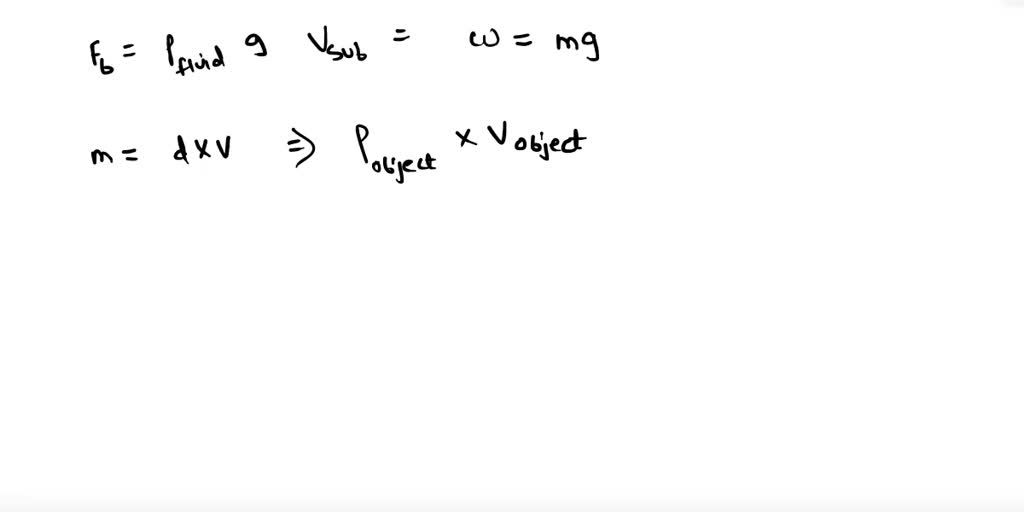 F_b = ρ_fluid g V_sub = ω = mg
m = d×V ⇒ ρ_object × V_object